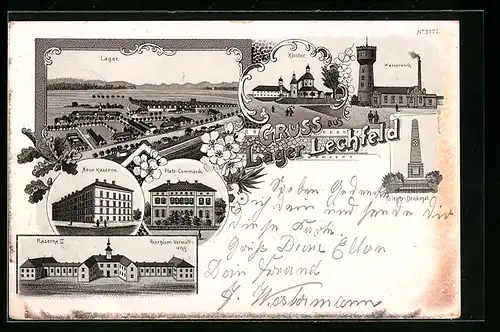 No 3171.
Lager.
Kloster.
Wasserwerk.
GRUSS aus
Lager Lechfeld
Neue Kaserne.
Platz-Commando.
Kriegs-Denkmal.
Kaserne II
Garnison Verwalt-
ung
Soeben
ich dein und sende Dir
diese Karte
Grüß Deine Eltern
Dein Freund
J. Westermann